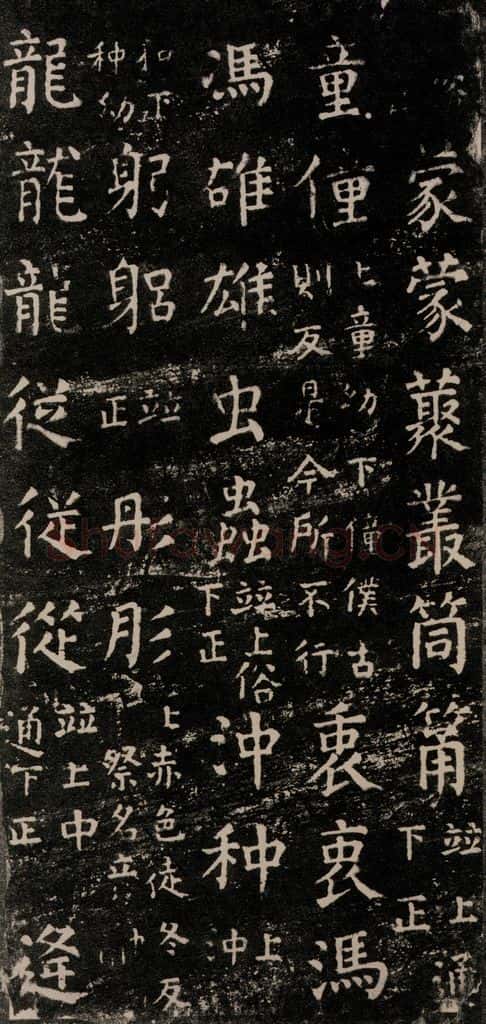 䝉蒙藂叢筒筩竝上通下正
童僮上童幼下僮僕古則反是今所不行衷衷馮
馮雄雄虫蟲竝上俗下正沖种上沖
和下种幼躬躳竝正彤肜上赤色徒冬反祭名
龍龍龍従従從竝上中通下正逢